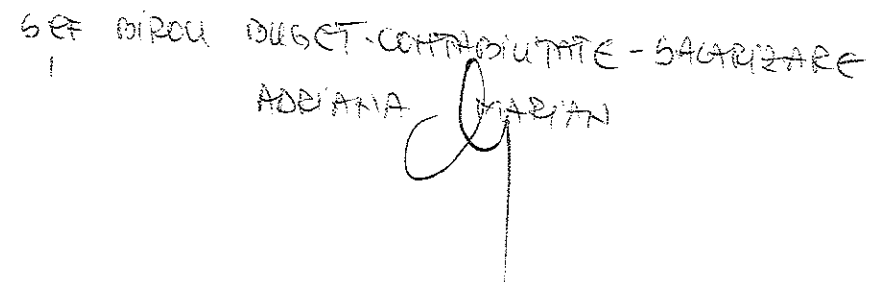 ȘEF BIROU BUGET-CONTABILITATE-SALARIZARE
ADRIANA MARIAN